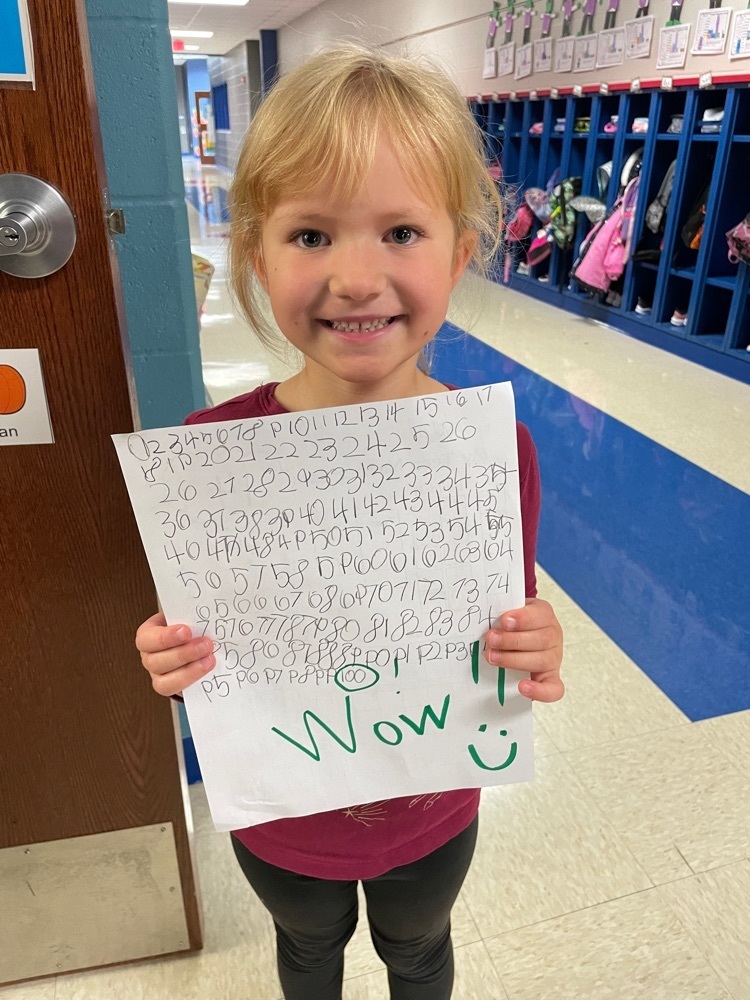 0 2 3 4 5 6 7 8 9 10 11 12 13 14 15 16 17
8 19 20 21 22 23 24 25 26
26 27 28 29 30 31 32 33 34 35
36 37 38 39 40 41 42 43 44 45
46 47 48 49 50 51 52 53 54 55
56 57 58 59 60 61 62 63 64
65 66 67 68 69 70 71 72 73 74
75 76 77 78 79 80 81 82 83 84
85 86 87 88 89 90 91 92 93
95 96 97 98 99 100
Wow!!
an